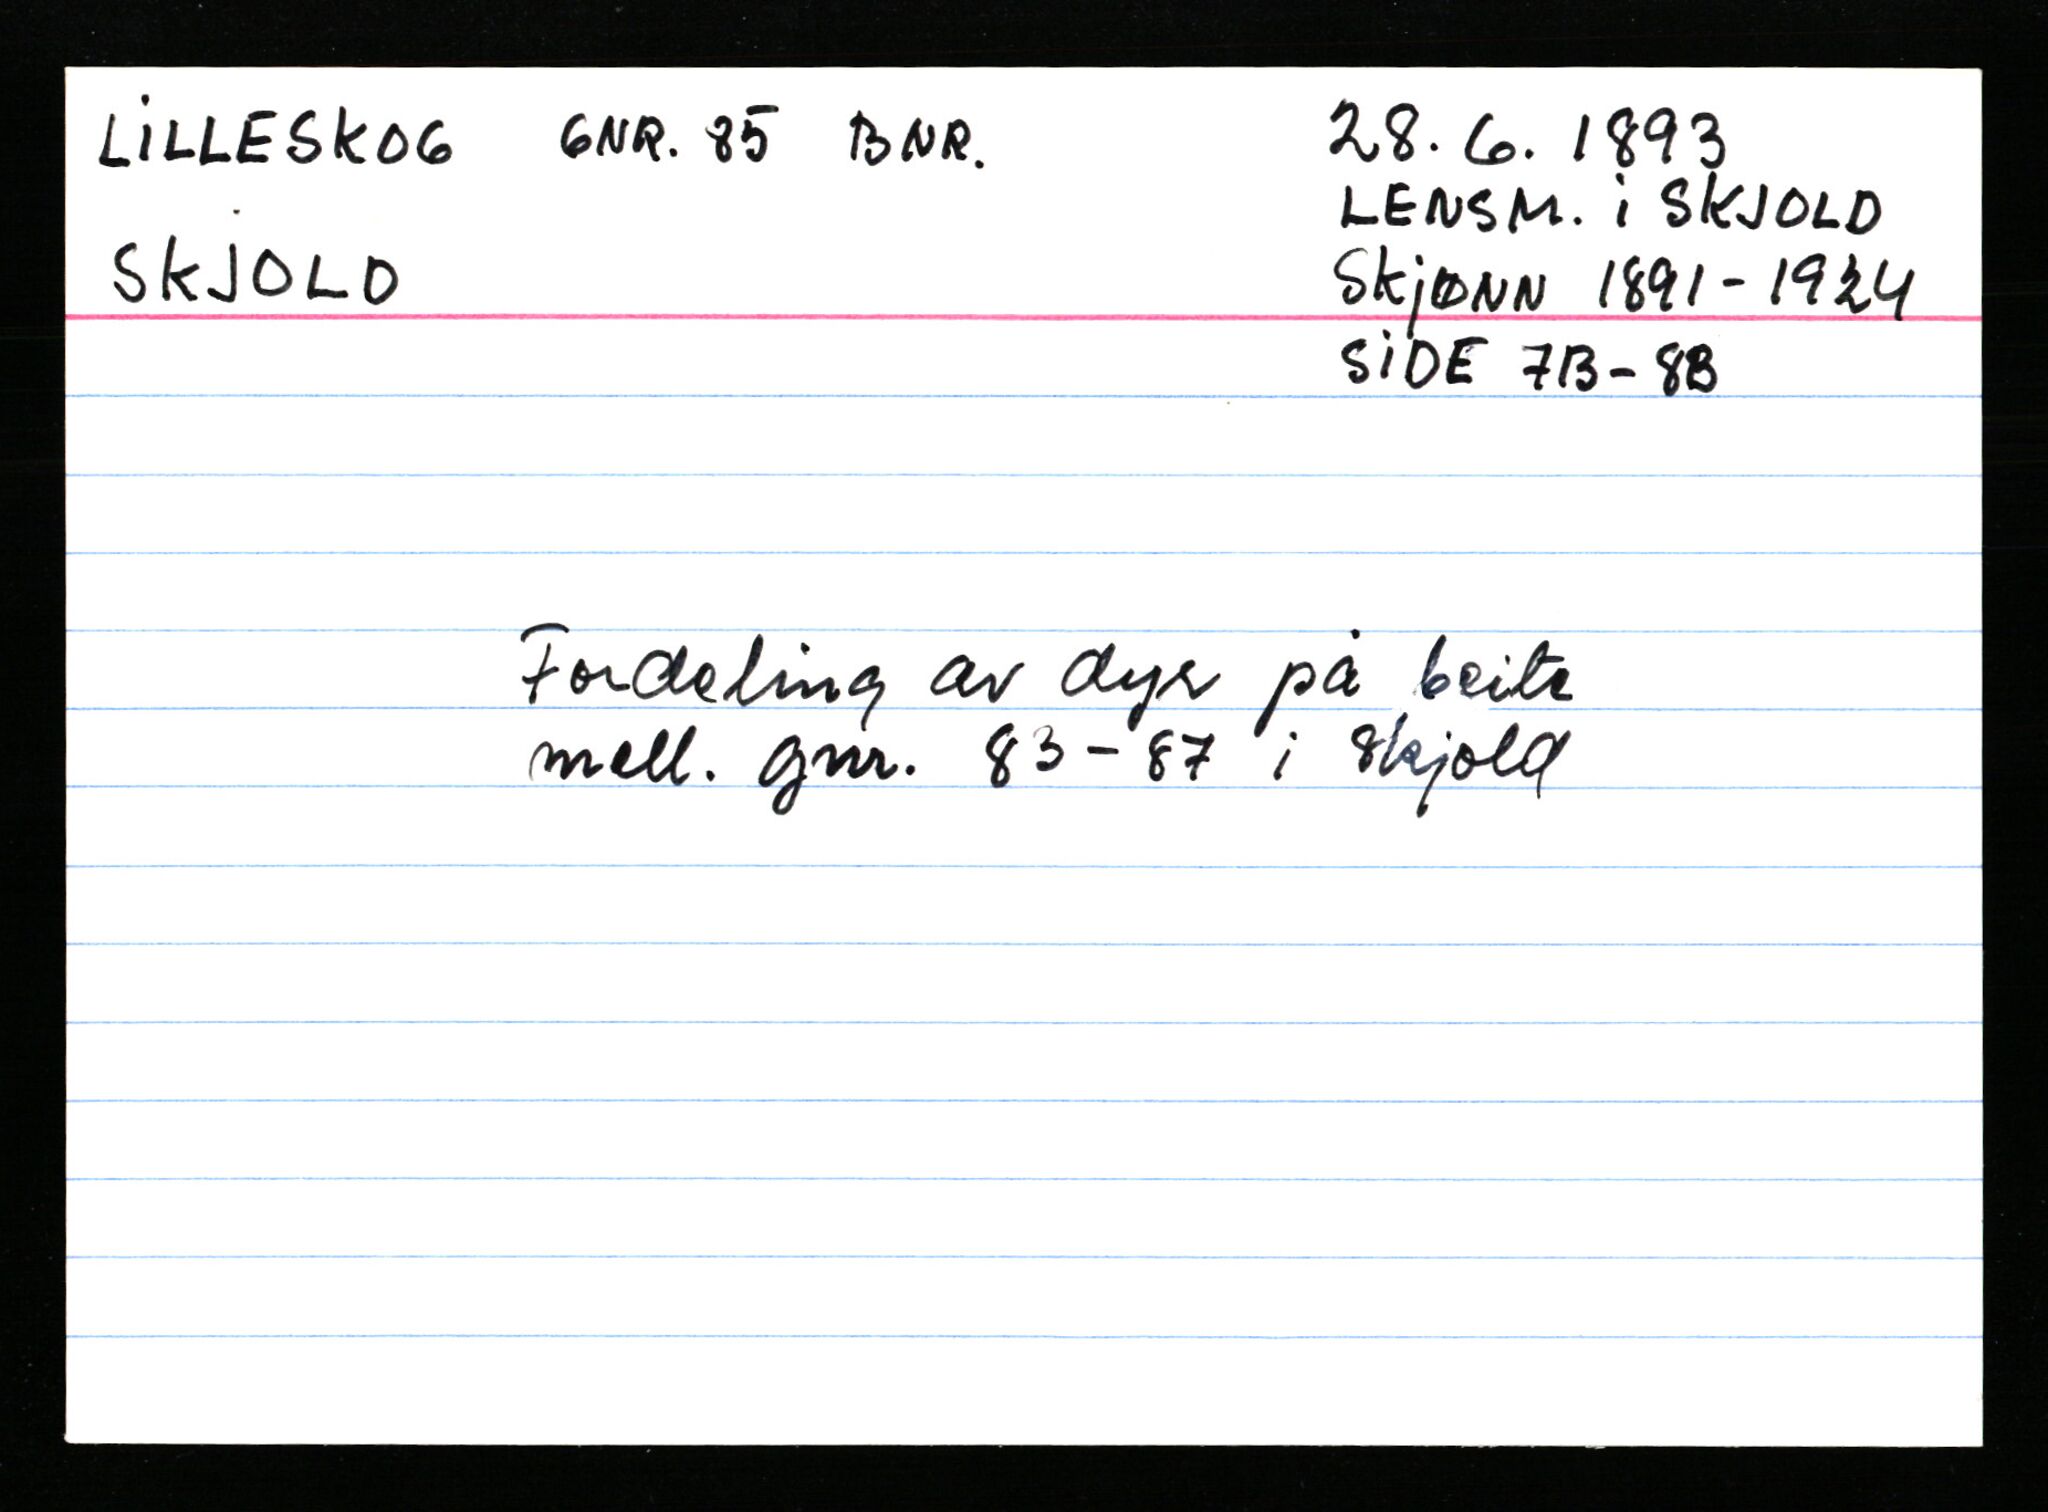 LILLESKOG GNR. 85 BNR.
SKJOLD
28. 6. 1893
LENSM. i SKJOLD
SKJØNN 1891-1924
SIDE 7B-8B
Fordeling av dyr på beite
mell. gnr. 83-87 i Skjold